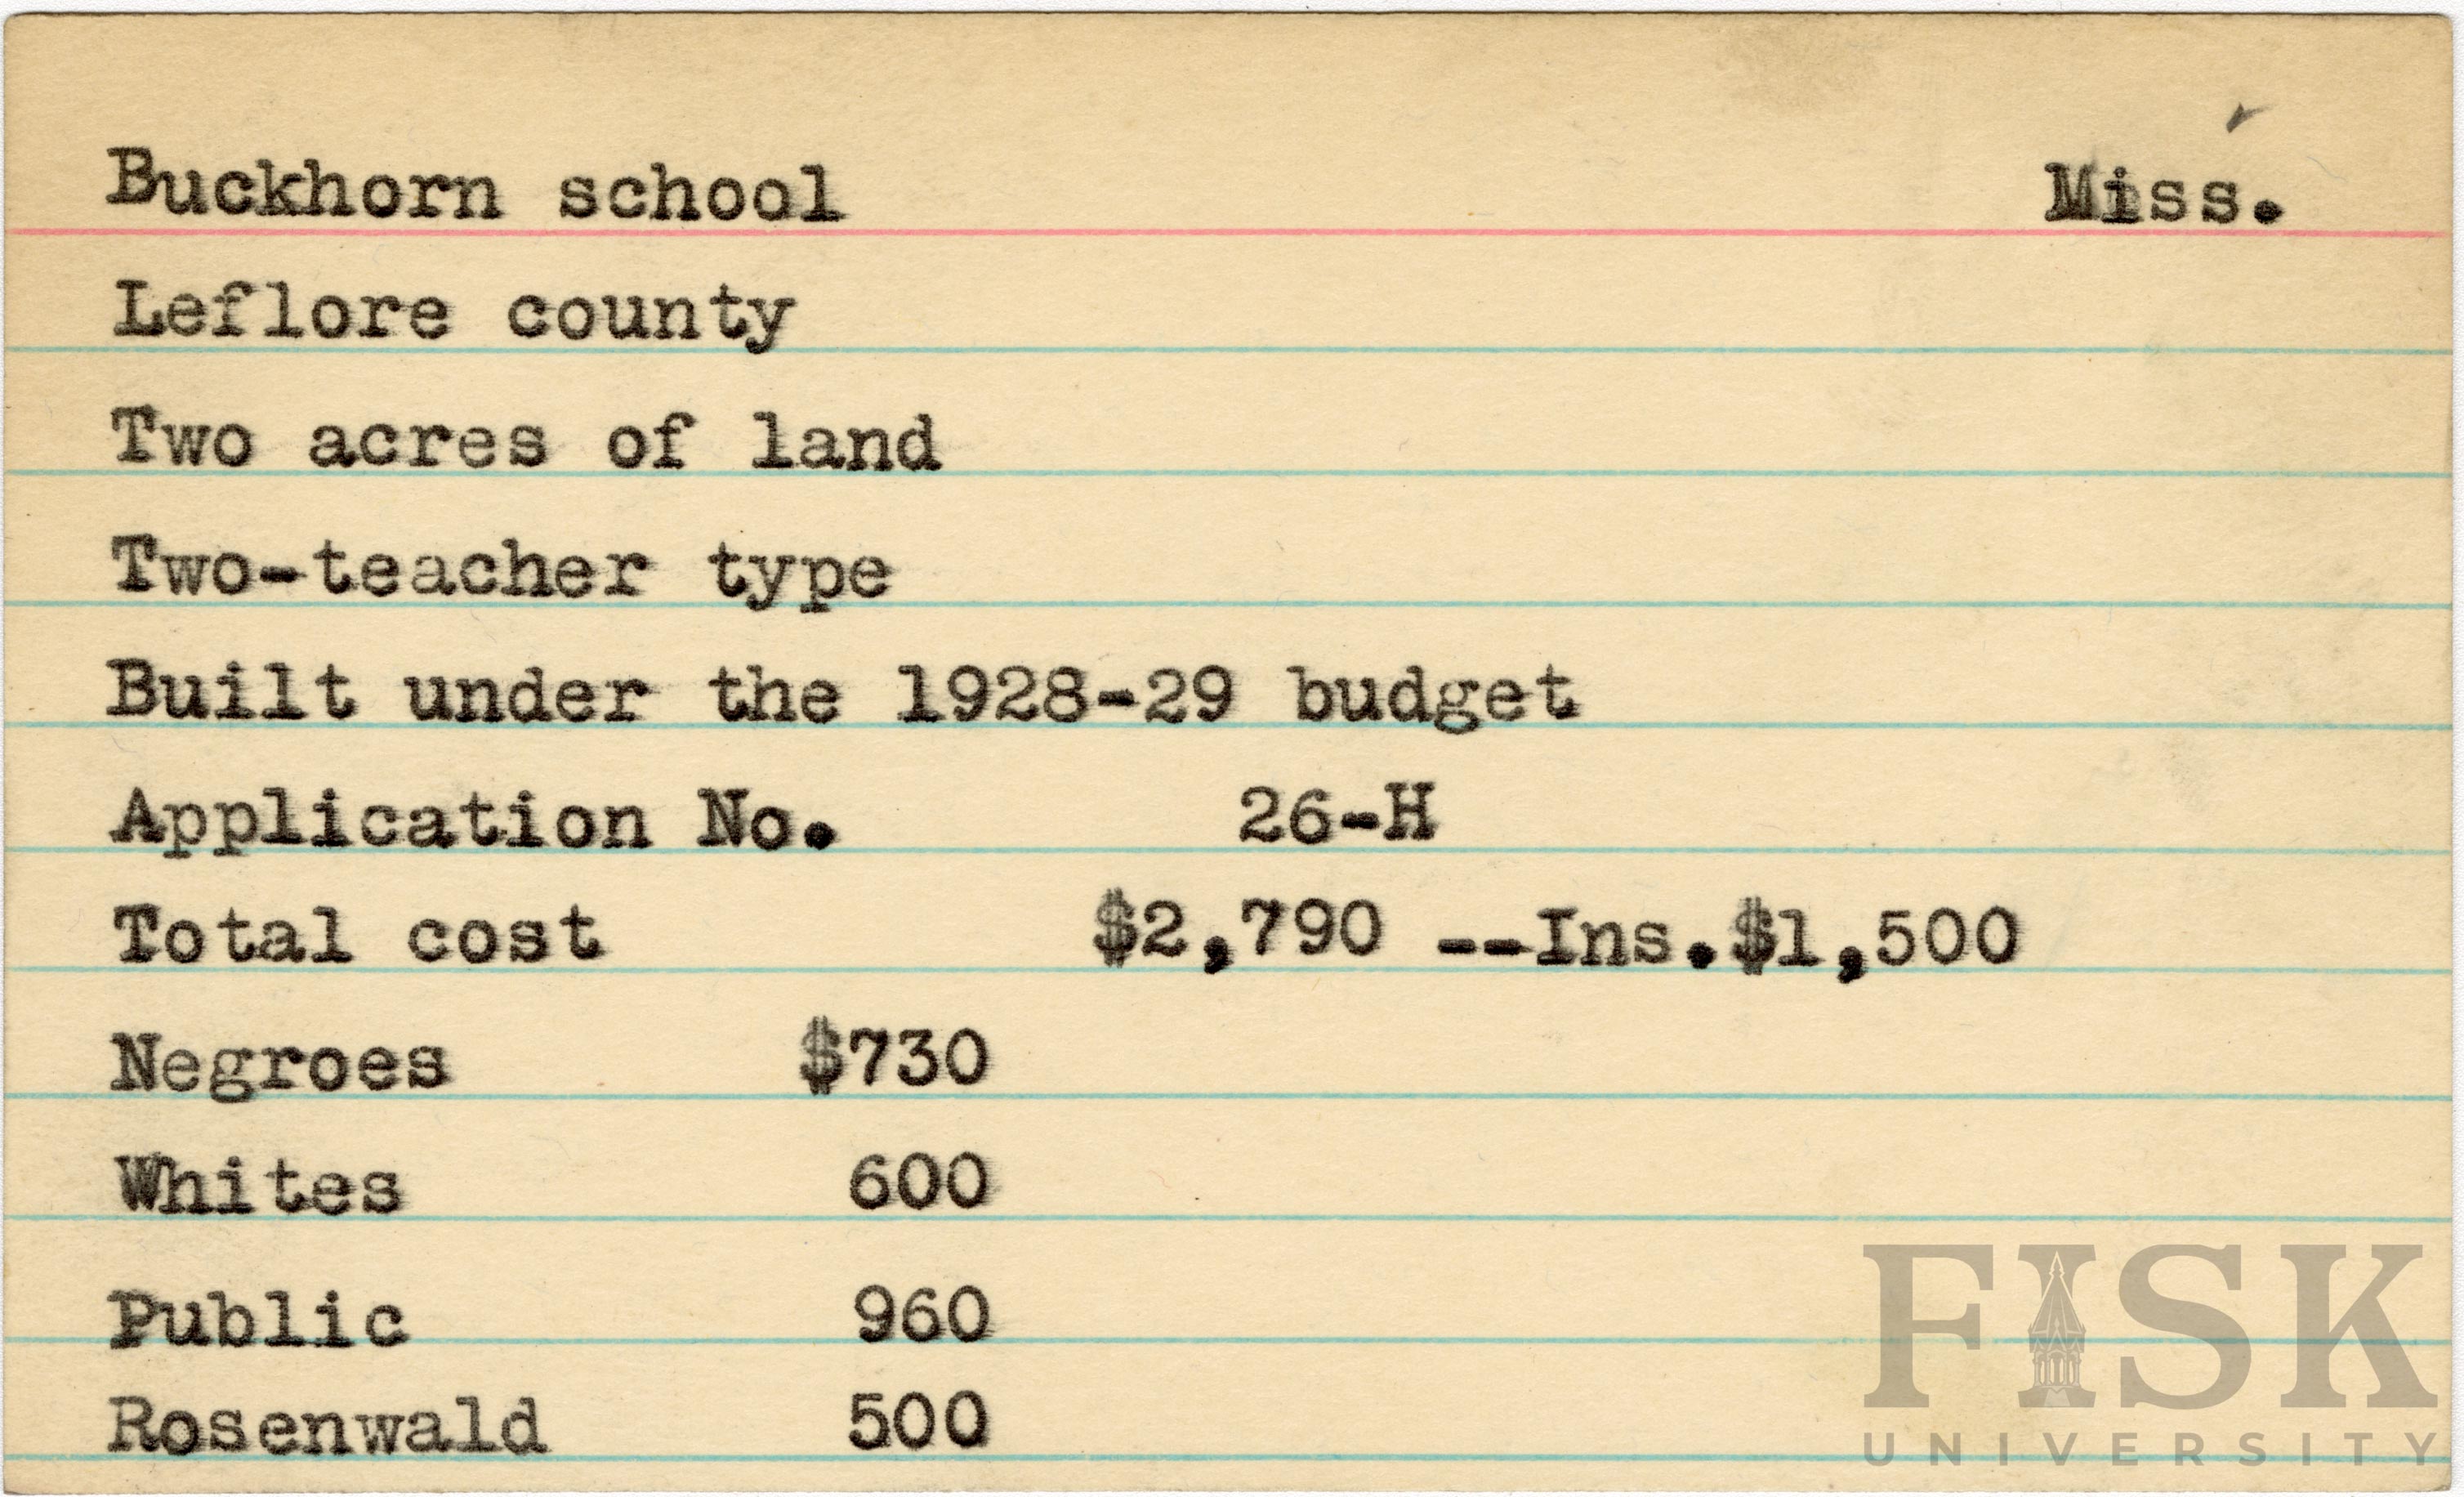 Buckhorn school Miss.
Leflore county
Two acres of land
Two-teacher type
Built under the 1928-29 budget
Application No. 26-H
Total cost $2,790 --Ins.$1,500
Negroes $730
Whites 600
Public 960
Rosenwald 500
FISK
UNIVERSITY